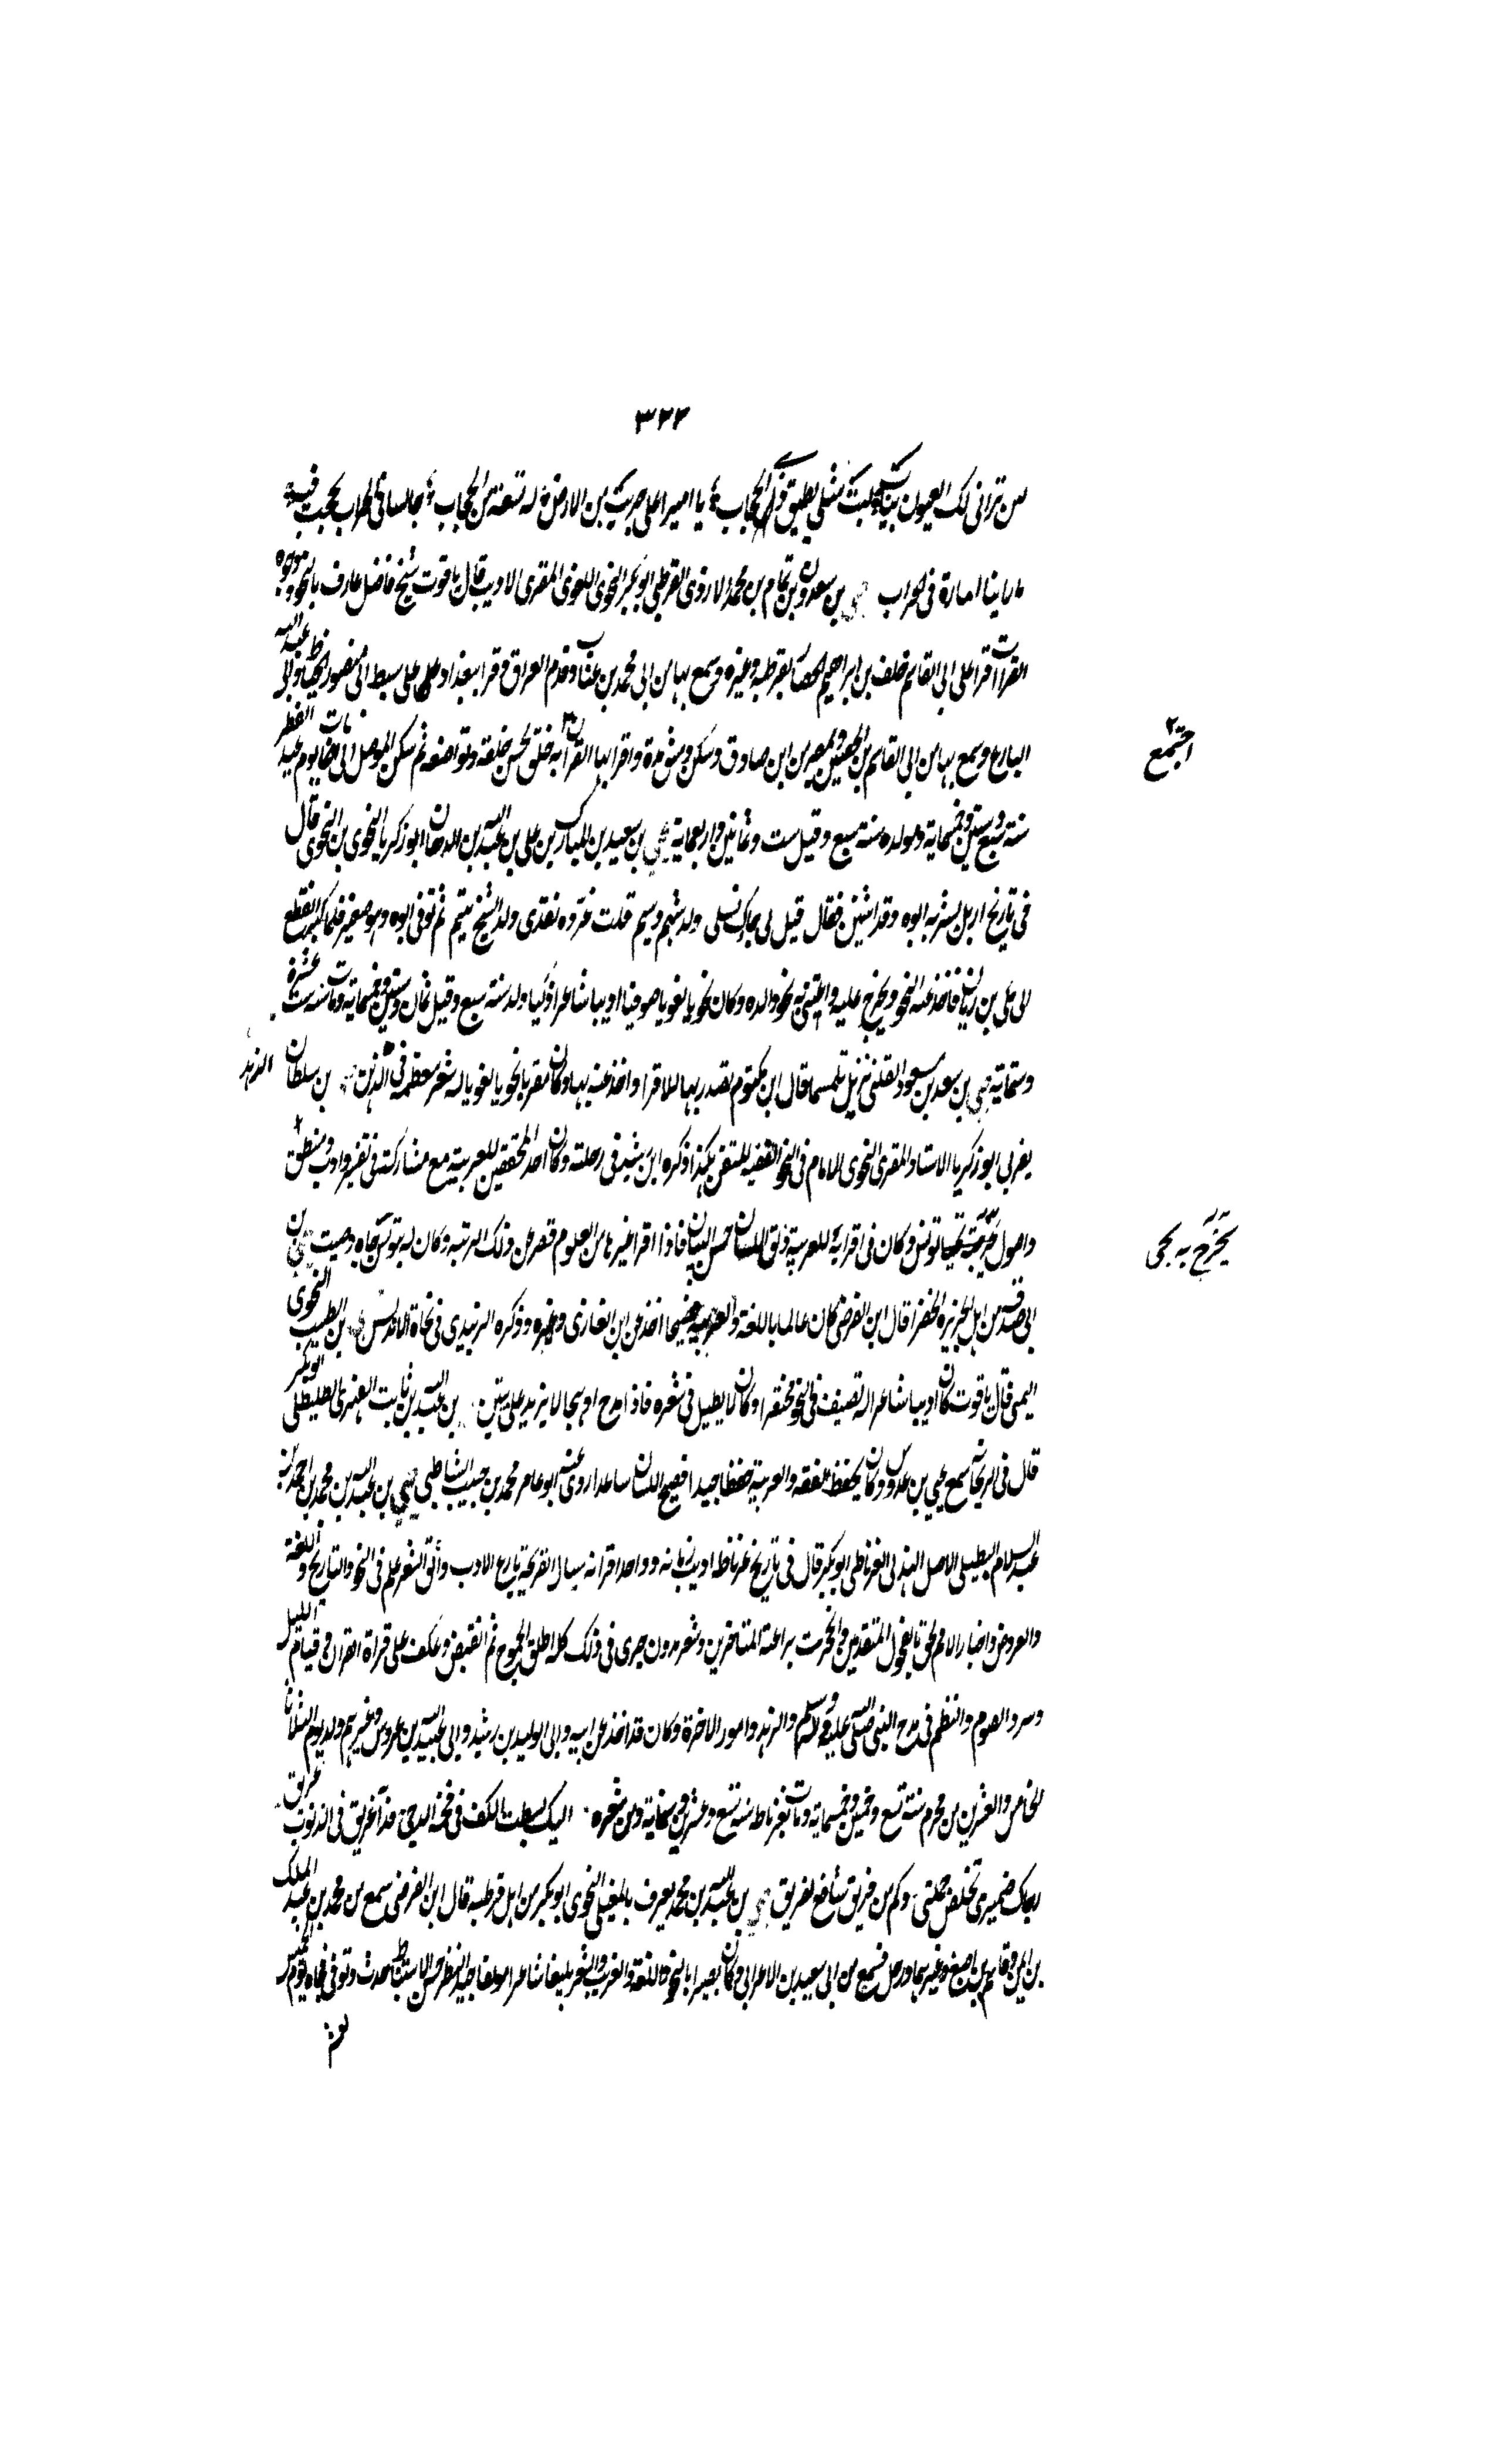 ٣٢٢
من تراني لك العيون ببابك ليت مثلي يطيق ذل الحجاب يا اميرا على جريب من الارض له تسعة من الحجاب جالسا في الخراب يحجب فيه
ما راينا امارة في خراب يحيى بن سعدون بن تمام بن محمد الازدي القرطبي ابو بكر النحوي اللغوي المقرى الاديب قال ياقوت شيخ فاضل عارف بالنحو ووجوه
القراات قرا على ابي القاسم خلف بن ابراهيم الحصار بقرطبة وغيره وسمع بها من ابي محمد بن عتاب وقدم العراق وقرا ببغداد على سبط ابي منصور الخياط وابي عبد الله
البارع وسمع بها من ابي القاسم بن الحصين وبمصر من ابن صادق وسكن دمشق مدة واقرا بها القرآن به خلق لحسن خلقه وتواضعه ثم سكن الموصل الى ان مات بها يوم عيد الفطر
اجتمع
سنة سبع وستين وخمسماية ومولده سنة سبع وقيل ست وثمانين واربعماية يحيى بن سعيد بن المبارك بن علي بن عبد الله بن الدهان ابو زكريا النحوي بن النحوي قال
في تاريخ اربل بشر به ابوه وقد اسن فقال قيل لي جاك نسل ولد شهم وسيم قلت عزوه بفقدي ولد الشيخ يتيم ثم توفي ابوه وهو صغير فلما كبر انقطع
الى مكي بن ريان فاخذ عنه النحو وتخرج عليه واعتني به نحو والده وكان نحويا لغويا صوفيا اديبا شاعرا ذكيا ولد سنة سبع وقيل ثمان وستين وخمسماية ومات سنة ست عشرة
وستماية يحيى بن سعد بن مسعود القلني نزيل تلمسان قال ابن مكتوم تصدر بها للاقرا واخذ عنه بها وكان مقريا نحويا لغويا له شعر معظمه في الزهد يحيى بن سلطان
اليفرني ابو زكريا الاستاذ المقرى النحوي الامام في النحو الفقيه المتفنن هكذا ذكره ابن رشيد في رحلته وكان احد المحققين للعربية مع مشاركة في تفسير وادب ومنطق
واصول تونس وكان في اقرائه للعربية ذلق اللسان حسن البيان فاذا اقرا غيرها من العلوم قصر عن ذلك الرتبة وكان له بتونس جاه وصيت يحيى بن
يخرج به يحيى
ابي صدقة من اهل الجزيرة الخضرا قال ابن الفرضي كان عالما باللغة والعربية فصيحا اخذ عن ابن الغازي وغيره وذكره الزبيدي في نحاة الاندلس يحيى بن الطيب النحوي
اليمني قال ياقوت كان اديبا شاعرا له تصنيف في النحو مختصر وكان لا يطيل في شعره فاذا مدح او هجا لا يزيد على بيتين يحيى بن عبد الله بن ثابت الفهري الطليطلي ابو بكر
قال في الريحانة سمع يحيى بن عبدوس وكان يحفظ الفقه والعربية حفظا جيدا فصيح اللسان روى عنه ابو عامر محمد بن حبيب الشاطبي يحيى بن عبد الله بن محمد بن احمد بن
عبد السلام البطيلي الاصل الهذلي الغرناطي ابو بكر قال في تاريخ غرناطة اديب زمانه وواحد اقرانه سيال القريحة بارع الادب رائق الشعر علم في النحو والتاريخ واللغة
والعروض واخبار الامم لحق بالفحول المتقدمين واعجزت براعته المتاخرين وشعره مدون جرى في ذلك كله طلق الجموح ثم انقبض وعكف على قراة القران وقيام الليل
وسرد الصوم والنظم في مدح النبي صلى الله عليه وسلم والزهد وامور الاخرة وكان قد اخذ عن ابيه وابي الوليد بن رشيد وابي عبد الله بن عروس وغيرهم ولد يوم الثلاثا
الخامس والعشرين من محرم سنة تسع وخمسين وخمسماية ومات بغرناطة سنة تسع وعشرين وستماية ومن شعره اليك بسطت الكف في فحمة الدجى ندا غريق في الذنوب عريق
رجاك ضميري كي تخلص جملتي وكم من فريق شافع لفريق يحيى بن عبد الله بن محمد يعرف بالمغيلي النحوي ابو بكر من اهل قرطبة قال ابن الفرضي سمع من محمد بن عبد الملك
بن ايمن وقاسم بن اصبغ وغيرهما ورحل فسمع من ابي سعيد بن الاعرابي وكان بصيرا بالنحو واللغة والغريب والشعر بليغا شاعرا مولفا جيد النظر حسن الاستنباط حدث وتوفي فجاه يوم